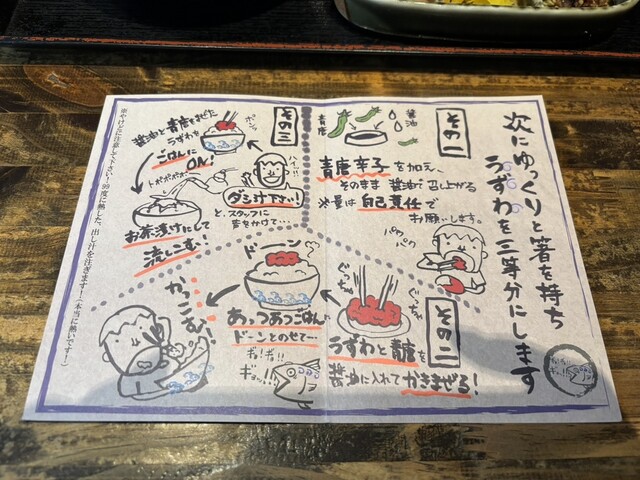 次にゆっくりと箸を持ち
うずわを三等分にします
その一
醤油
青唐
青唐辛子を加え、
そのまま醤油で召し上がる
※量は自己責任で
お願いします。
パク
パク
その二
ぐっちゃ
ぐっちゃ
うずわと青唐を
醤油に入れてかきまぜる!
ドーン
あっつあつごはんに
ドーンとのせて…
ギョ!ギョ!!
ギョッ!!
かっこむ!
その三
ポン
醤油と青唐をまぜた
うずわを
ごはんに
ON!
ハイ!!!
ダシ汁下さい!
と、スタッフに
声をかけて…
トポポポポ
お茶漬けにして
流しこむ!
※やけどに注意して下さい!99度に熱した、出し汁を注ぎます!(本当に熱いです!)